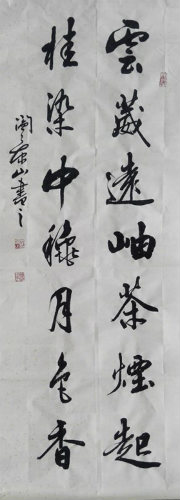 雲藏遠岫茶煙起
桂染中秋月色香
山書之